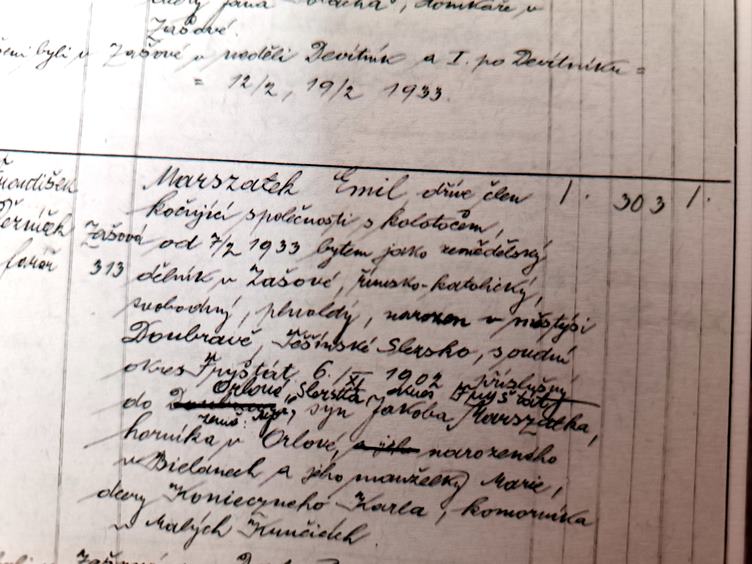 dcery Jana
Zašové.
byli v Zašové v neděli Devítník a I. po Devítníku =
= 12/2, 19/2 1933.
František
farář
Zašová
313
Marszałek Emil dříve člen
kočující společnosti s kolotočem,
od 7/2 1933 bytem jako zemědělský
dělník v Zašové, římsko-katolický,
svobodný, plnoletý, narozen v městysi
Doubravě, Těšínské Slezsko, soudní
okres Fryštát, 6./XI 1902 příslušný
Orlové, Slezsko okres Fryštát
do syn Jakoba Marszałka,
horníka v Orlové, narozeného
v Bielanech a jeho manželky Marie,
dcery Konieczného Karla, komorníka
v Malých Kunčicích.
1. 303 1.